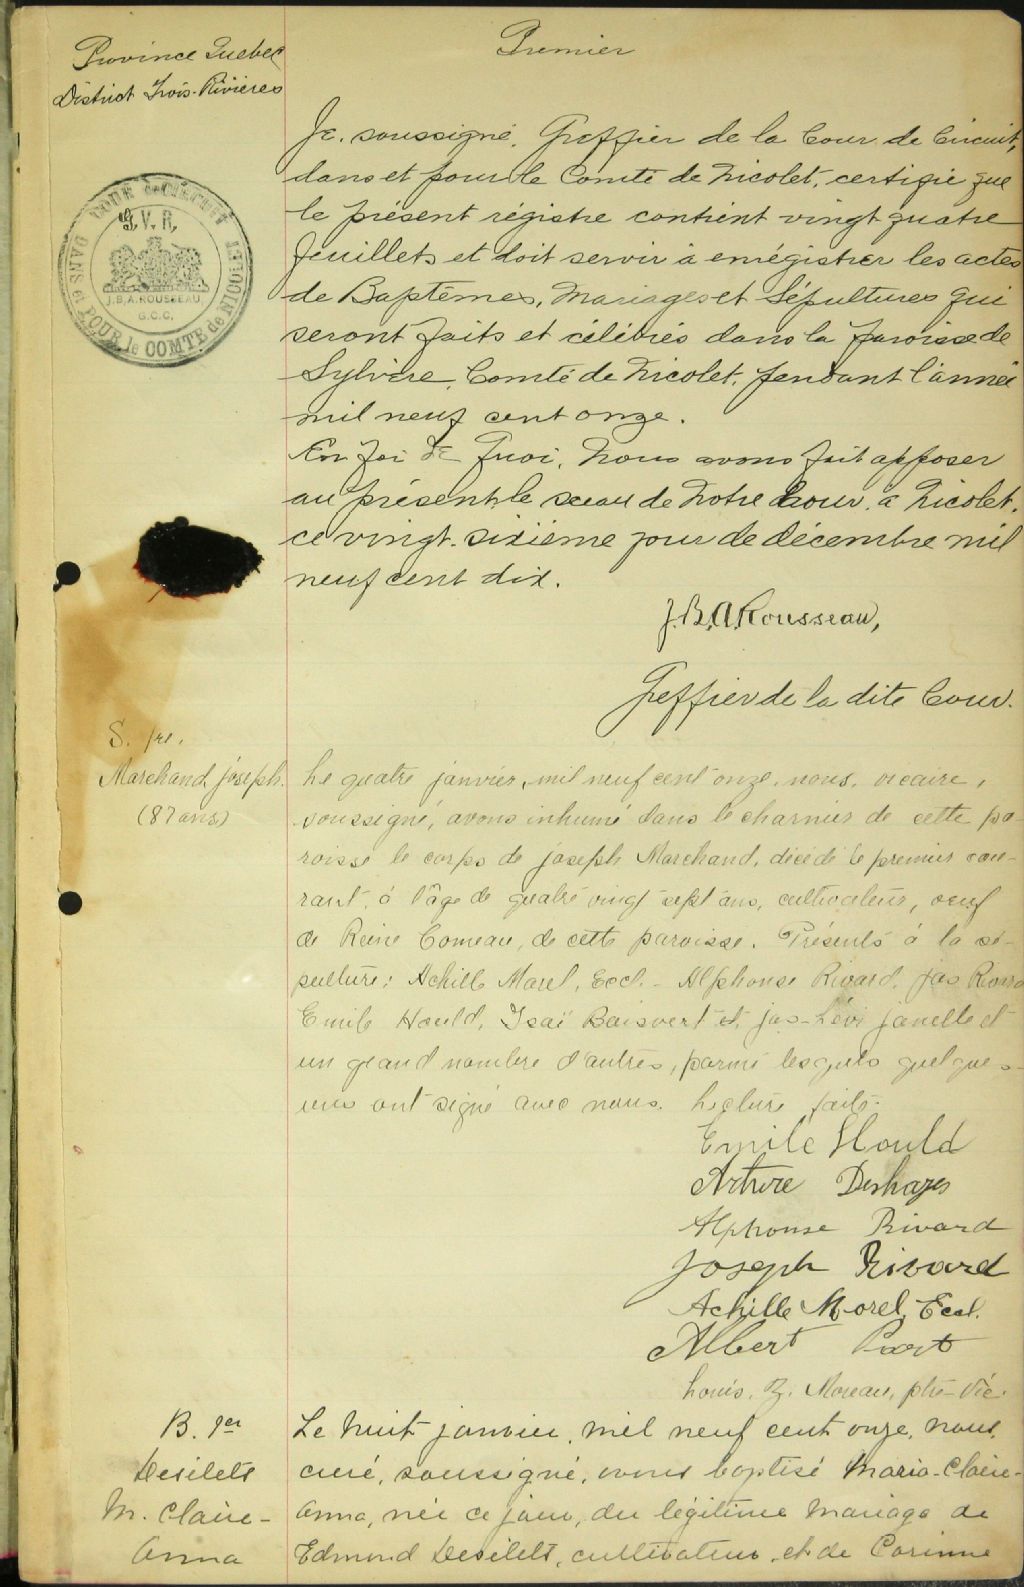 Premier
Province Quebec
District Trois-Rivières
Je, soussigné, Greffier de la Cour de Circuit,
dans et pour le Comté de Nicolet, certifie que
le présent régistre contient vingt quatre
feuillets et doit servir à enrégistrer les actes
de Baptêmes, Mariages et Sépultures qui
seront faits et célébrés dans la paroisse de
Sylvère, Comté de Nicolet, pendant l'année
mil neuf cent onze.
En foi de quoi, Nous avons fait apposer
au présent le sceau de Notre Cour, à Nicolet,
ce vingt-sixième jour de décembre mil
neuf cent dix.
J.B.A. Rousseau,
Greffier de la dite Cour.
COUR de CIRCUIT
DANS et POUR le COMTE de NICOLET
G.V.R.
J.B.A. ROUSSEAU
G.C.C.
S. 1re.
Marchand joseph.
(87 ans)
Le quatre janvier, mil neuf cent onze, nous, vicaire,
soussigné, avons inhumé dans le charnier de cette pa-
roisse le corps de joseph Marchand, décédé le premier cou-
rant, à l'âge de quatre vingt sept ans, cultivateur, veuf
de Reine Comeau, de cette paroisse. Présents à la sé-
pulture: Achille Morel, Eccl. - Alphonse Rivard, jos Rivard
Emile Hould, Isaï Boisvert et jos-Lévi janelle et
un grand nombre d'autres, parmi lesquels quelques-
uns ont signé avec nous. Lecture faite.
Emile Hould
Arthure Deshayes
Alphonse Rivard
Joseph Rivard
Achille Morel, Eccl.
Albert
Louis. Z. Moreau, ptre-Vic.
B. 1er
Desilets
M. Claire-
Anna
Le huit janvier, mil neuf cent onze, nous,
curé, soussigné, avons baptisé Maria-Claire-
Anna, née ce jour, du légitime mariage de
Edmond Desilets, cultivateur, et de Corinne